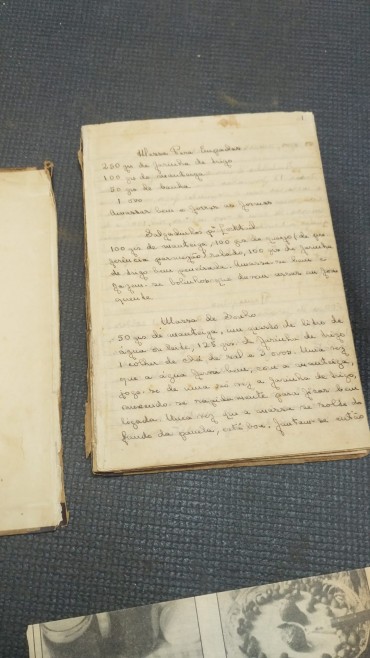 Massa Para Empadas
250 grs de farinha de trigo
100 grs de manteiga
50 grs de banha
1 ovo
Amassar bem e forrar as formas
Salgadinhos pª Cocktail
100 grs de manteiga, 100 grs de queijo (de pre
ferência parmezão) ralado, 100 grs de farinha
de trigo bem peneirada. Amassa-se tudo e
fazem-se bolinhos que devem assar no forno
quente.
Massa de Sonho
50 grs de manteiga, um quarto de litro de
água ou leite, 125 grs de farinha de trigo,
1 colher de chá de sal e 3 ovos. Uma vez
que a água ferva bem, com a manteiga,
joga-se de uma só vez a farinha de trigo,
mexendo-se rapidamente para ficar bem
ligada. Uma vez que a massa se solte do
fundo da panela, está boa. Juntam-se então